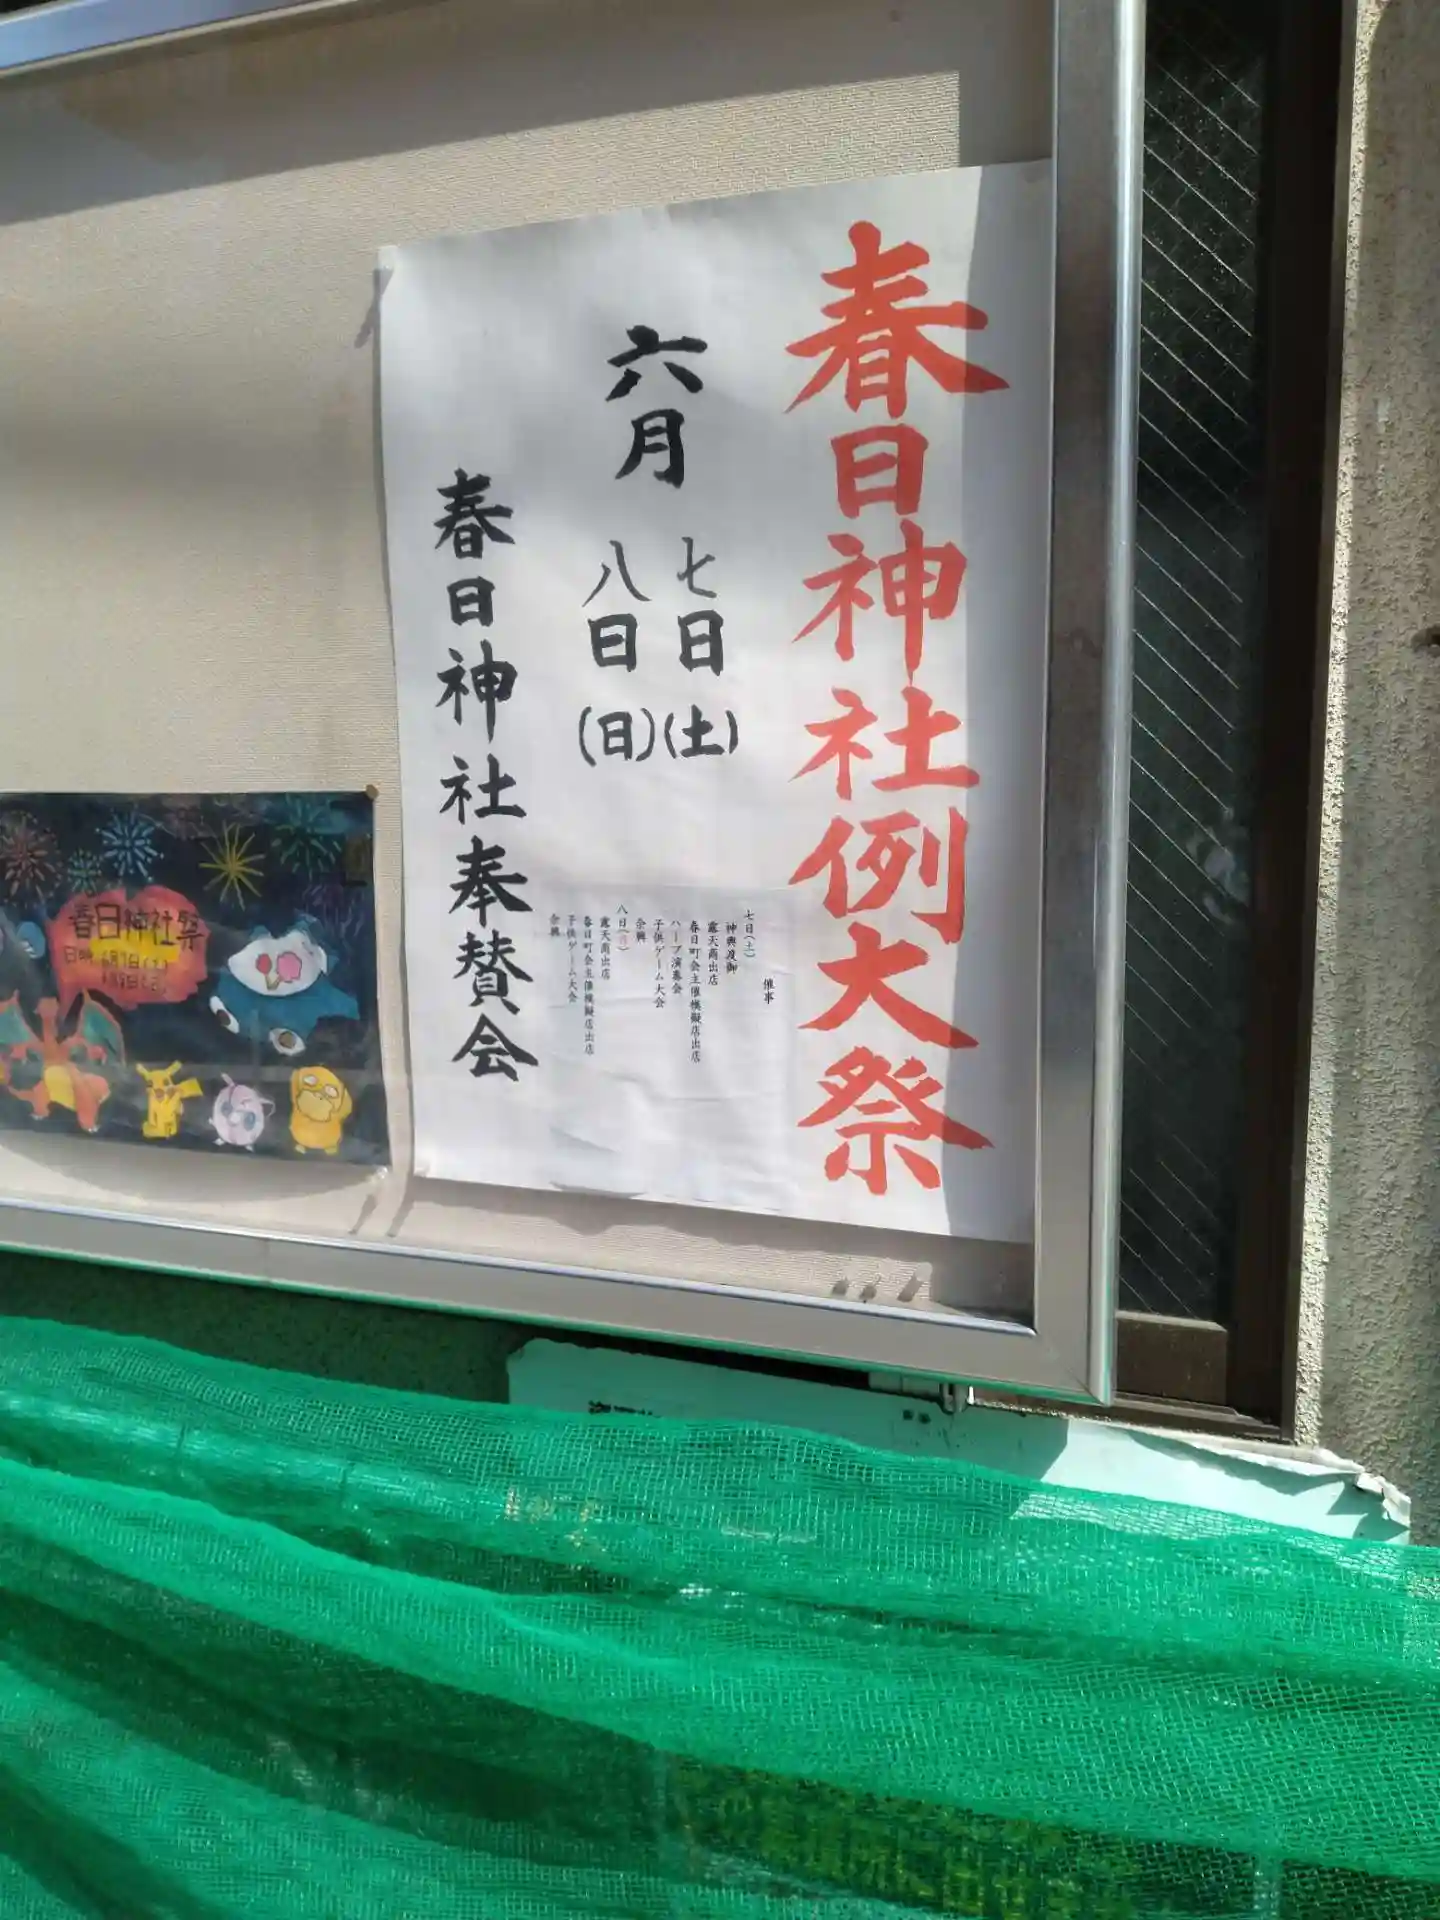 春日神社例大祭
六月
七日(土)
八日(日)
春日神社奉賛会
催事
七日(土)
神輿渡御
露天商出店
春日町会主催模擬店出店
ハープ演奏会
子供ゲーム大会
余興
八日(日)
露天商出店
春日町会主催模擬店出店
子供ゲーム大会
余興
春日神社祭
日時 6月7日(土)
6月8日(日)